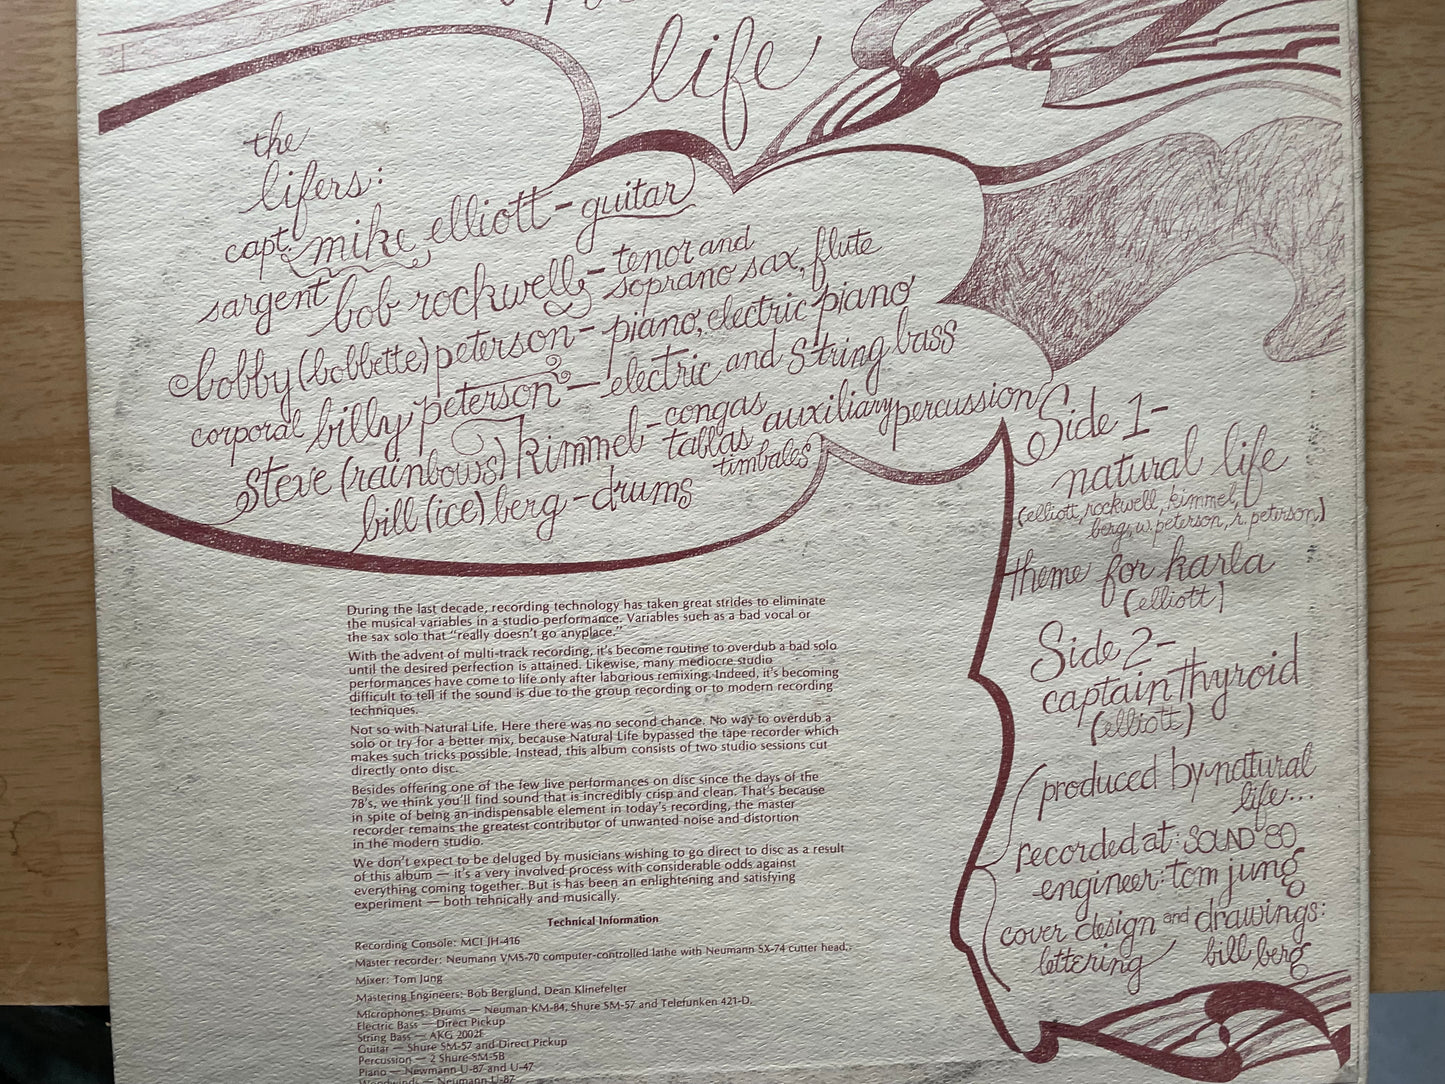 life
the
lifers:
capt. mike elliott - guitar
sargent bob rockwell - tenor and
soprano sax, flute
bobby (bobbette) peterson - piano, electric piano
corporal billy peterson - electric and string bass
steve (rainbows) kimmel - congas
tallas auxiliary percussion
timbales
bill (ice) berg - drums
Side 1-
natural life
(elliott, rockwell, kimmel,
berg, w. peterson, r. peterson)
theme for karla
(elliott)
Side 2-
captain thyroid
(elliott)
produced by natural
life...
recorded at: SOUND 80
engineer: tom jung
cover design and drawings:
lettering bill berg
During the last decade, recording technology has taken great strides to eliminate
the musical variables in a studio performance. Variables such as a bad vocal or
the sax solo that "really doesn't go anyplace."
With the advent of multi-track recording, it's become routine to overdub a bad solo
until the desired perfection is attained. Likewise, many mediocre studio
performances have come to life only after laborious remixing. Indeed, it's becoming
difficult to tell if the sound is due to the group recording or to modern recording
techniques.
Not so with Natural Life. Here there was no second chance. No way to overdub a
solo or try for a better mix, because Natural Life bypassed the tape recorder which
makes such tricks possible. Instead, this album consists of two studio sessions cut
directly onto disc.
Besides offering one of the few live performances on disc since the days of the
78's, we think you'll find sound that is incredibly crisp and clean. That's because
in spite of being an indispensable element in today's recording, the master
recorder remains the greatest contributor of unwanted noise and distortion
in the modern studio.
We don't expect to be deluged by musicians wishing to go direct to disc as a result
of this album — it's a very involved process with considerable odds against
everything coming together. But is has been an enlightening and satisfying
experiment — both tehnically and musically.
Technical Information
Recording Console: MCI JH-416
Master recorder: Neumann VMS-70 computer-controlled lathe with Neumann SX-74 cutter head.
Mixer: Tom Jung
Mastering Engineers: Bob Berglund, Dean Klinefelter
Microphones: Drums — Neuman KM-84, Shure SM-57 and Telefunken 421-D.
Electric Bass — Direct Pickup
String Bass — AKG 2002E
Guitar — Shure SM-57 and Direct Pickup
Percussion — 2 Shure SM-5B
Piano — Newmann U-87 and U-47
Woodwinds — Neumann U-87